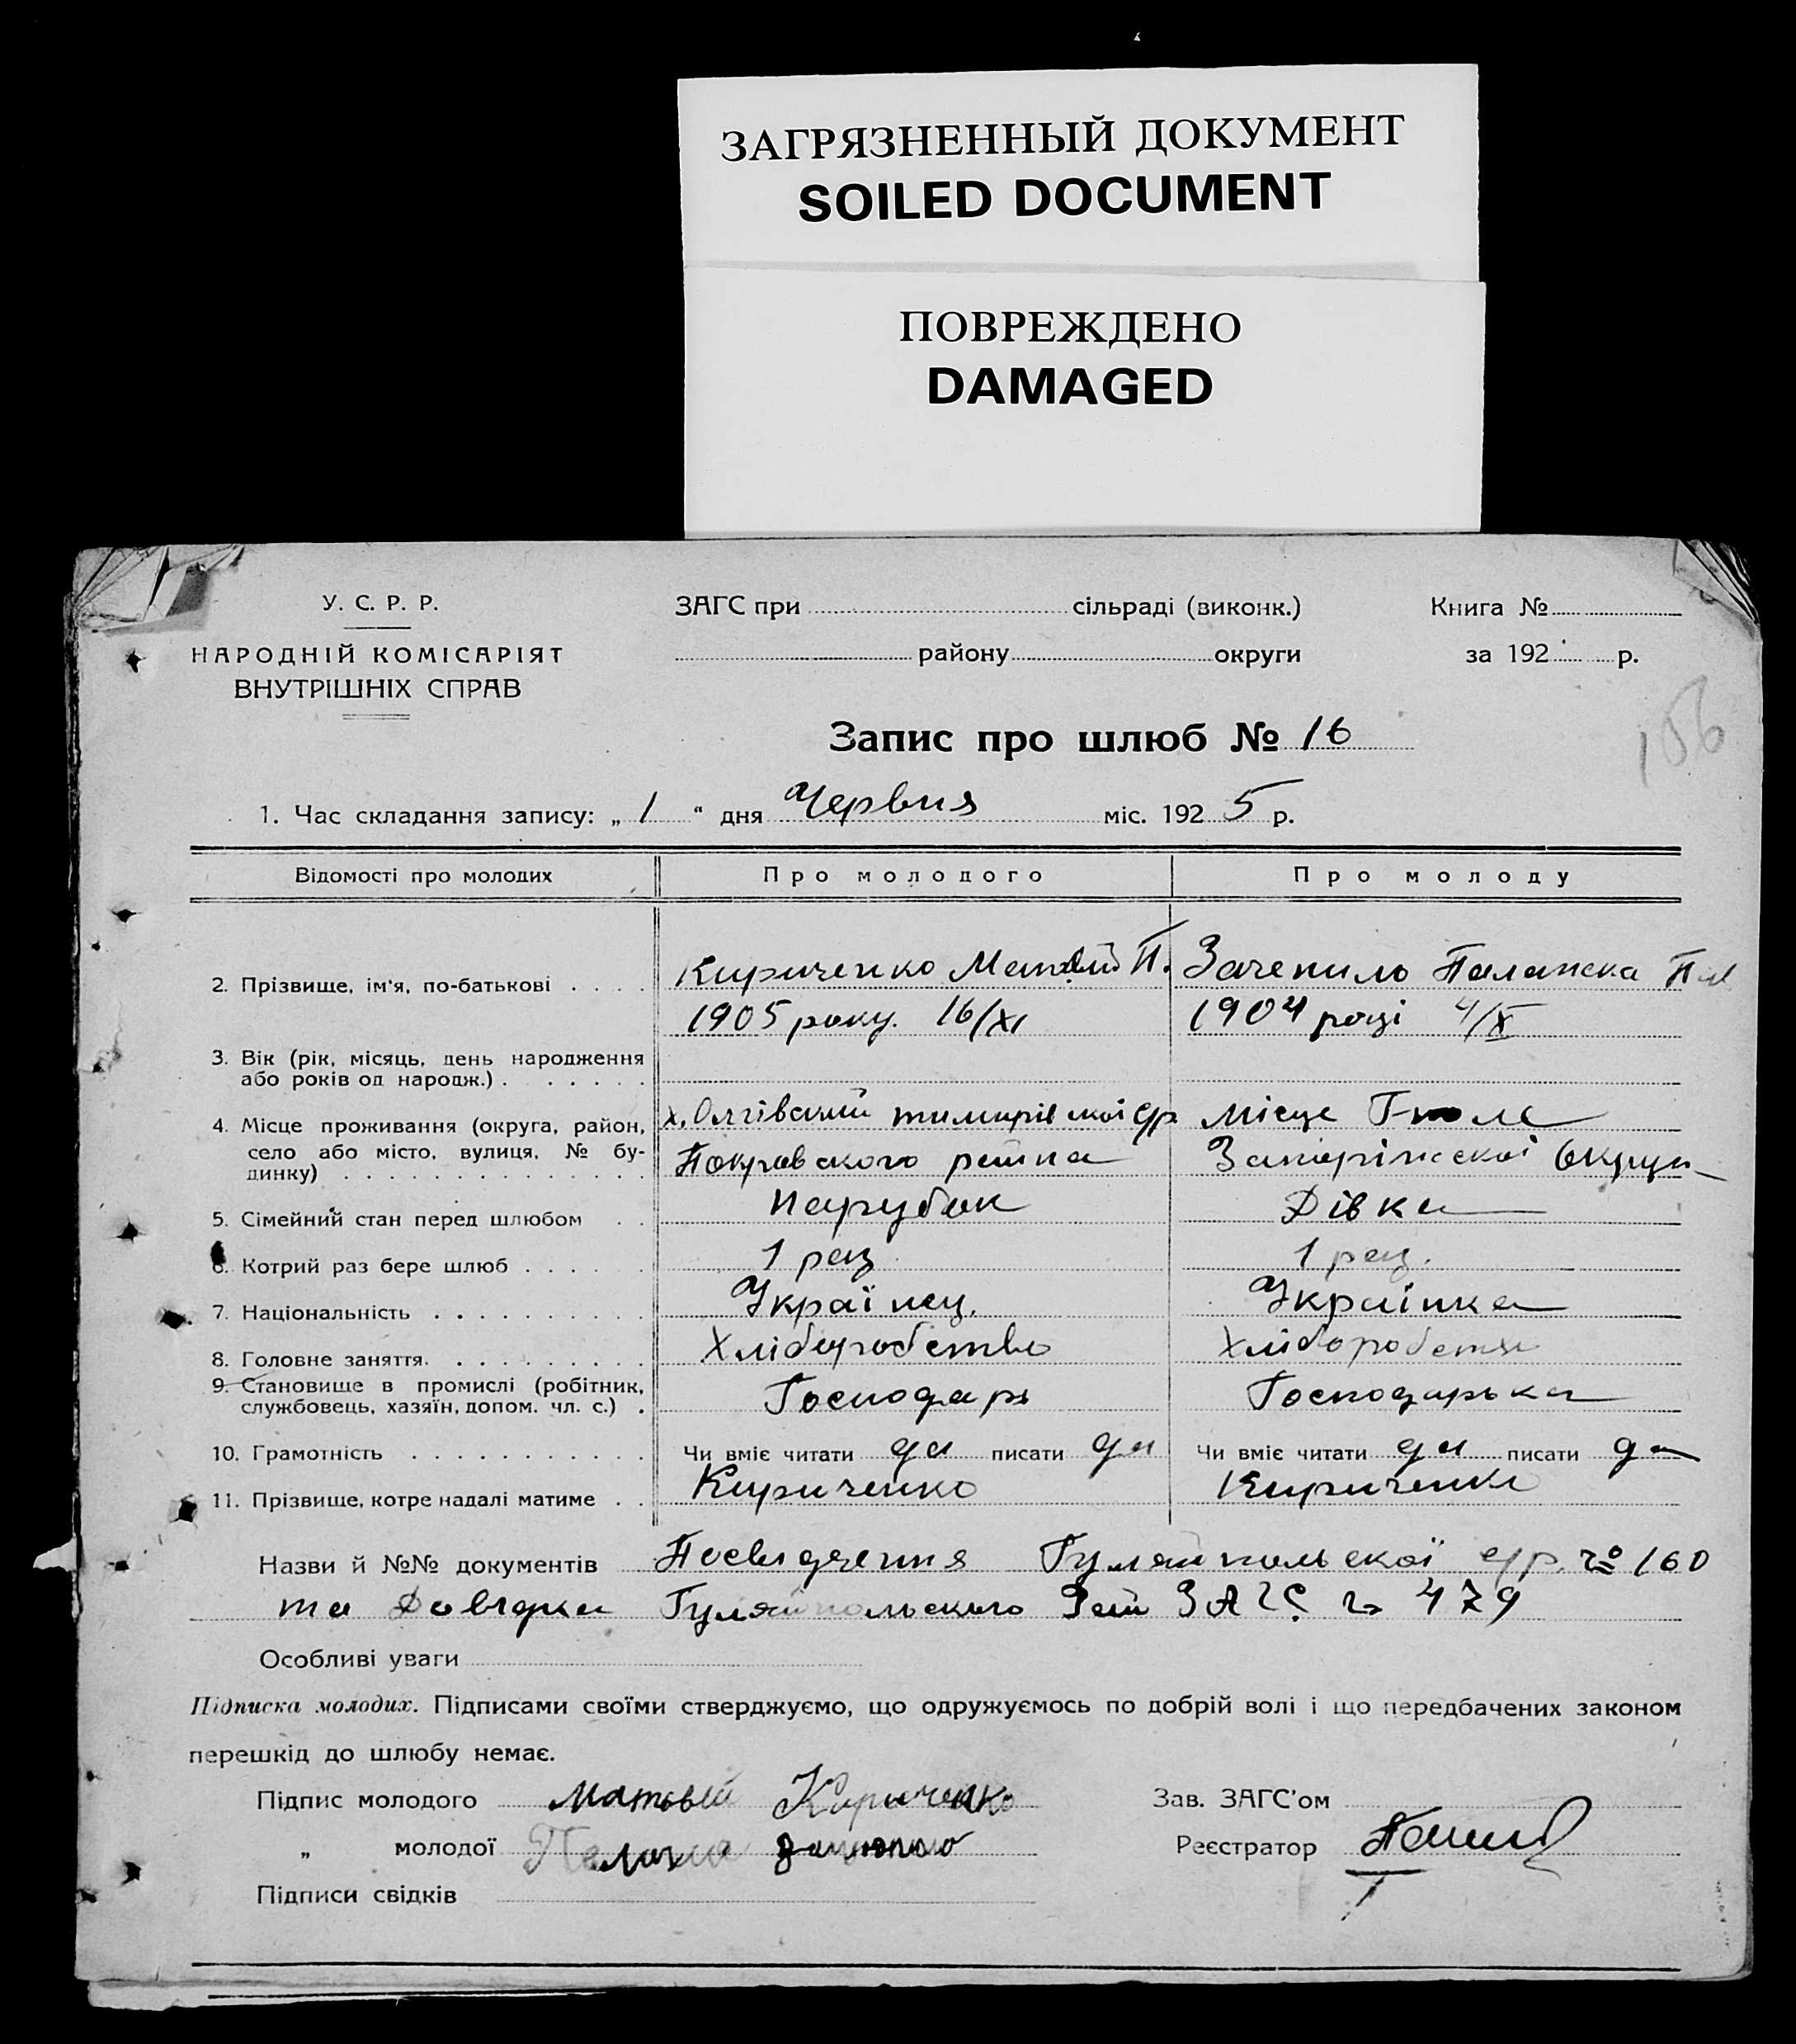 ЗАГРЯЗНЕННЫЙ ДОКУМЕНТ
SOILED DOCUMENT
ПОВРЕЖДЕНО
DAMAGED
У. С. Р. Р.
НАРОДНІЙ КОМІСАРІЯТ
ВНУТРІШНІХ СПРАВ
ЗАГС при сільраді (виконк.)
району округи
Книга №
за 192 р.
156
Запис про шлюб № 16
1. Час складання запису: „ 1 “ дня Червня міс. 192 5 р.
Відомості про молодих Про молодого Про молоду
2. Прізвище, ім'я, по-батькові Кириченко П. Зачепило
1905 року. 16/XI 1904 році 4/X
3. Вік (рік, місяць, день народження
або років од народж.)
4. Місце проживання (округа, район,
село або місто, вулиця, № бу-
динку)
х. Ольгівський с/р Місце Г-поле
Покровского района Запоріжскої Округи
5. Сімейний стан перед шлюбом Парубок Дівка
6. Котрий раз бере шлюб 1 раз 1 раз.
7. Національність Українец. Українка
8. Головне заняття. Хліборобство Хліборобство
9. Становище в промислі (робітник,
службовець, хазяїн, допом. чл. с.) Господарь Господарька
10. Грамотність Чи вміє читати да писати да Чи вміє читати да писати да
11. Прізвище, котре надалі матиме Кириченко Кириченко
Назви й №№ документів Посвідчення Гуляйпольскої с/р. № 160
та Довідка Гуляйпольского Рай ЗАГС № 479
Особливі уваги
Підписка молодих. Підписами своїми стверджуємо, що одружуємось по добрій волі і що передбачених законом
перешкід до шлюбу немає.
Підпис молодого Матвей Кириченко Зав. ЗАГС'ом
„ молодої Реєстратор
Підписи свідків